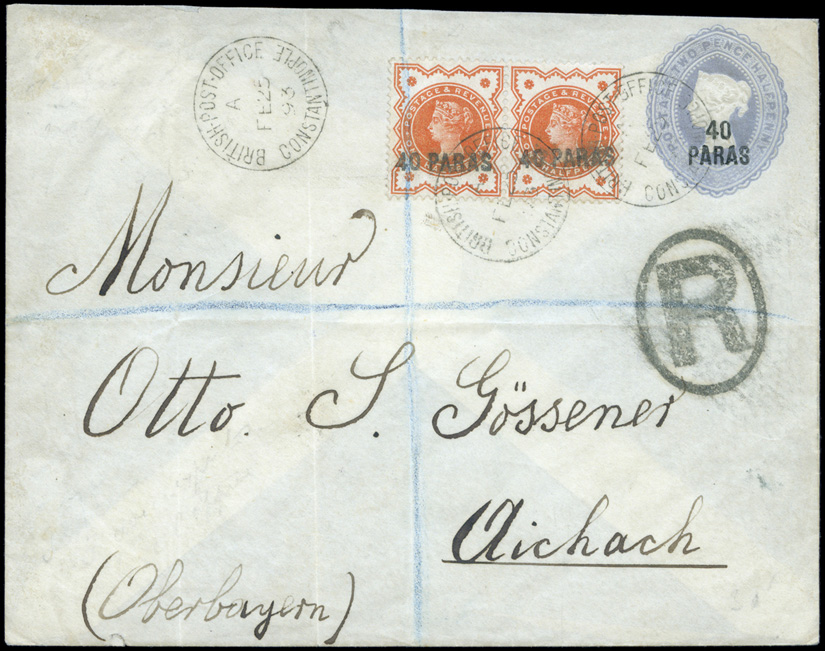 BRITISH·POST-OFFICE CONSTANTINOPLE
A
FE 25
93
POSTAGE & REVENUE
40 PARAS
POSTAGE & REVENUE
HALFPENNY
40 PARAS
POSTAGE TWO PENCE HALFPENNY
40
PARAS
R
Monsieur
Otto. S. Gössener
Aichach
(Oberbayern)